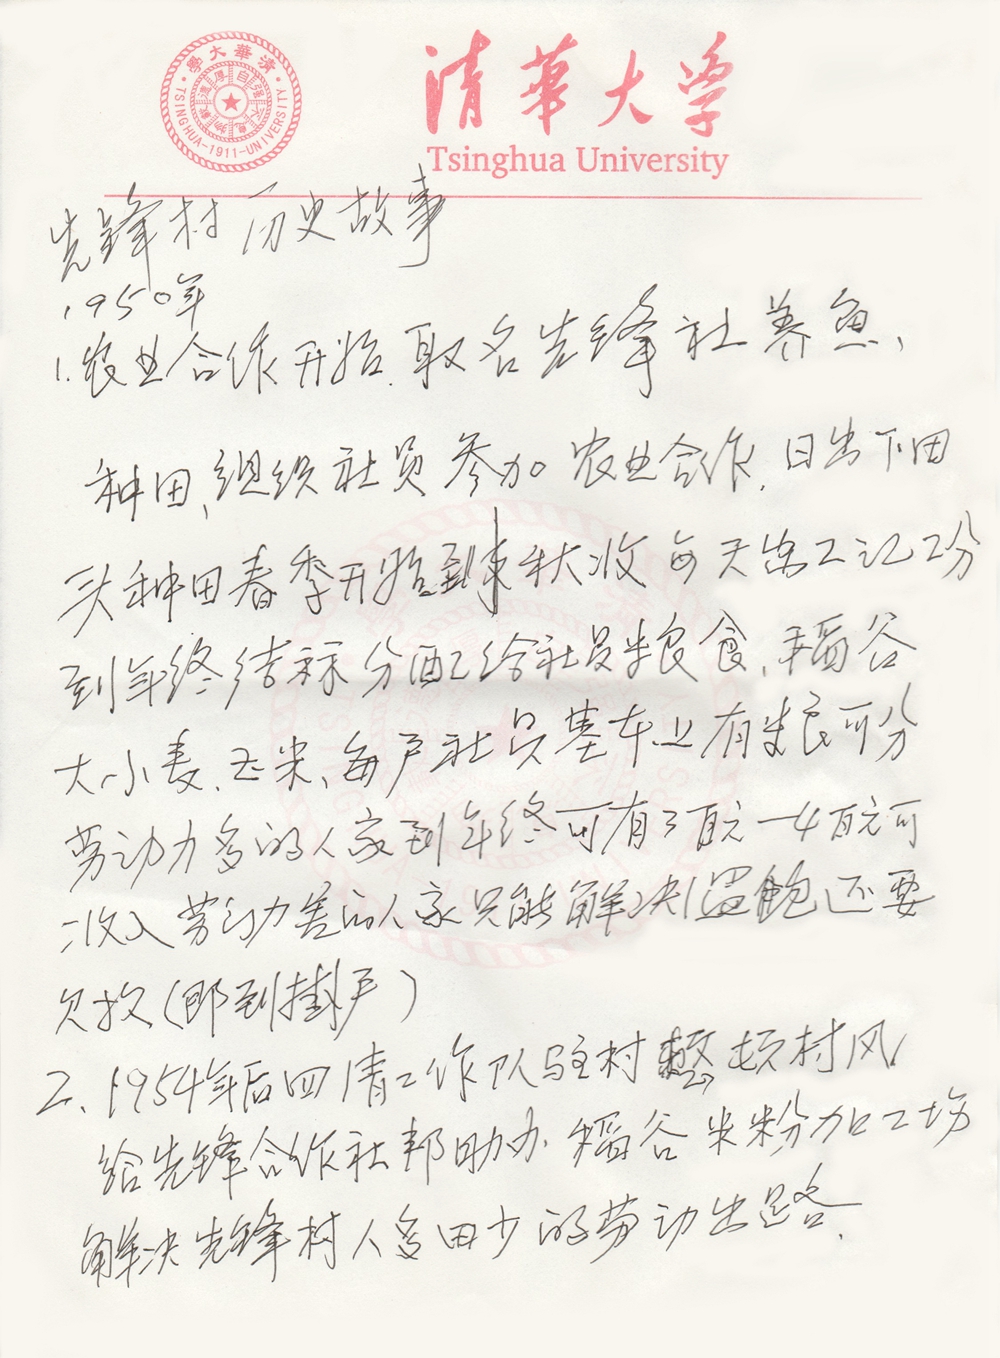 清華大学
Tsinghua University
清華大學
TSINGHUA-1911-UNIVERSITY
先锋村历史故事
1950年
1.农业合作开始.取名先锋社养鱼、
种田、组织社员参加农业合作,日出下田
头种田春季开始到秋收每天出工记工分
到年终结账分配给社员粮食、稻谷
大小麦、玉米、每户社员基本上有粮可分
劳动力多的人家到年终可有3百元—4百元可
收入劳动力差的人家只能解决温饱还要
欠款(即到挂户)
2、1954年后四清工作队驻村整顿村风
给先锋合作社邦助办稻谷米粉加工场
解决先锋村人多田少的劳动出路.